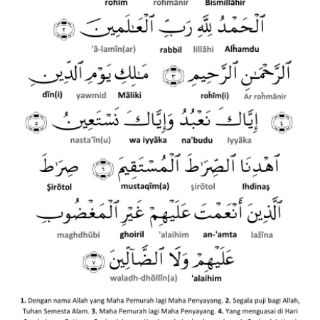 rohīm rohmānir Bismillāhir
ٱلْحَمْدُ لِلَّهِ رَبِّ ٱلْعَـٰلَمِينَ ٢
'ā-lamīn(ar) rabbil lillāhi Alḥamdu
ٱلرَّحْمَـٰنِ ٱلرَّحِيمِ ٣ مَـٰلِكِ يَوْمِ ٱلدِّينِ
dīn(i) yawmid Māliki roḥīm(i) Ar roḥmānir
٤ إِيَّاكَ نَعْبُدُ وَإِيَّاكَ نَسْتَعِينُ ٥
nasta'īn(u) wa iyyāka na'budu Iyyāka
ٱهْدِنَا ٱلصِّرَٰطَ ٱلْمُسْتَقِيمَ ٦ صِرَٰطَ
Ṣirōtol mustaqīm(a) ṣirōtol Ihdinaṣ
ٱلَّذِينَ أَنْعَمْتَ عَلَيْهِمْ غَيْرِ ٱلْمَغْضُوبِ
maghdhūbi ghoiril 'alaihim an-'amta lażīna
عَلَيْهِمْ وَلَا ٱلضَّآلِّينَ ٧
waladh-dhōllīn(a) 'alaihim
1. Dengan nama Allah yang Maha Pemurah lagi Maha Penyayang. 2. Segala puji bagi Allah,
Tuhan Semesta Alam. 3. Maha Pemurah lagi Maha Penyayang. 4. Yang menguasai di Hari